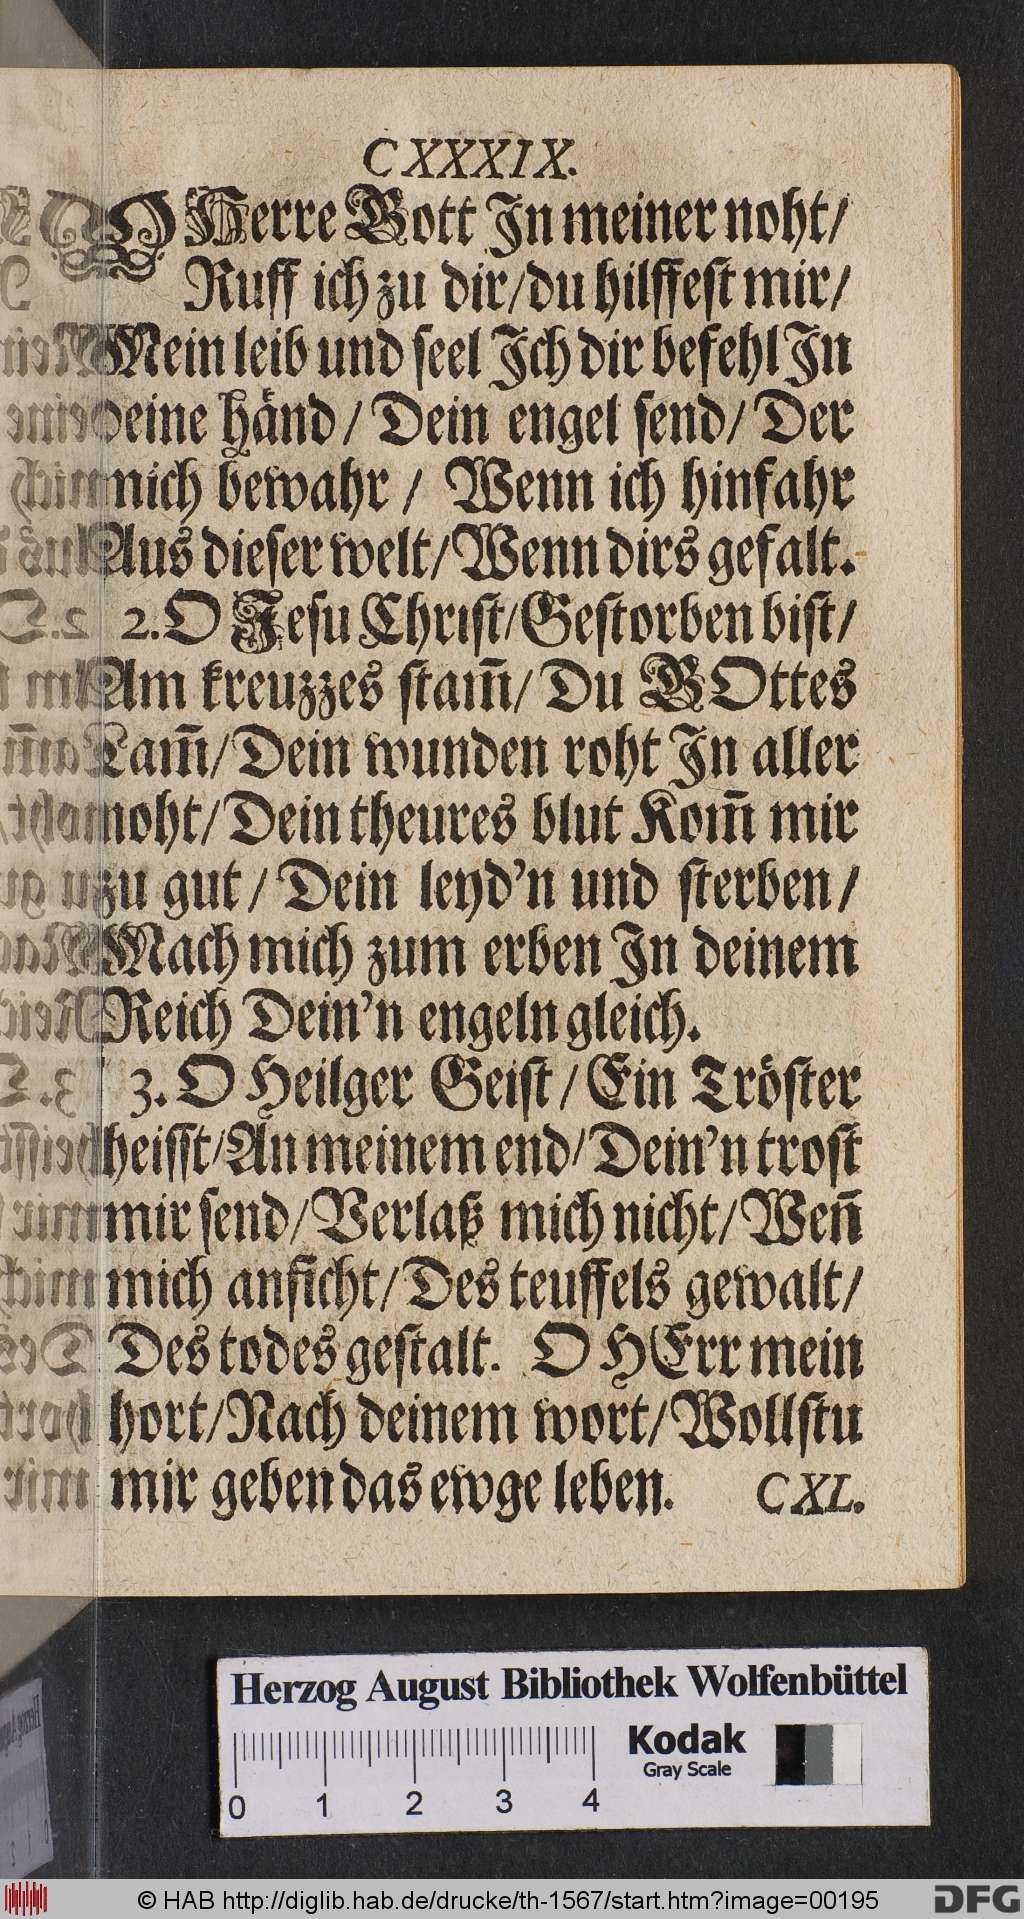 CXXXIX.
O HErre Gott In meiner noht/
Ruff ich zu dir/du hilffest mir/
Mein leib und seel Ich dir befehl In
deine händ/ Dein engel send/ Der
mich bewahr / Wenn ich hinfahr
Aus dieser welt/Wenn dirs gefalt.
2. O Jesu Christ/Gestorben bist/
Am kreuzzes stam̃/ Du GOttes
Lam̃/Dein wunden roht In aller
noht/Dein theures blut Kom̃ mir
zu gut/ Dein leyd'n und sterben/
Mach mich zum erben In deinem
Reich Dein'n engeln gleich.
3. O Heilger Geist/Ein Tröster
heisst/An meinem end/Dein'n trost
mir send/Verlaß mich nicht/Weñ
mich anficht/Des teuffels gewalt/
Des todes gestalt. O HErr mein
hort/Nach deinem wort/Wollstu
mir geben das ewge leben. CXL.
Herzog August Bibliothek Wolfenbüttel
Kodak
Gray Scale
0 1 2 3 4
© HAB http://diglib.hab.de/drucke/th-1567/start.htm?image=00195
DFG